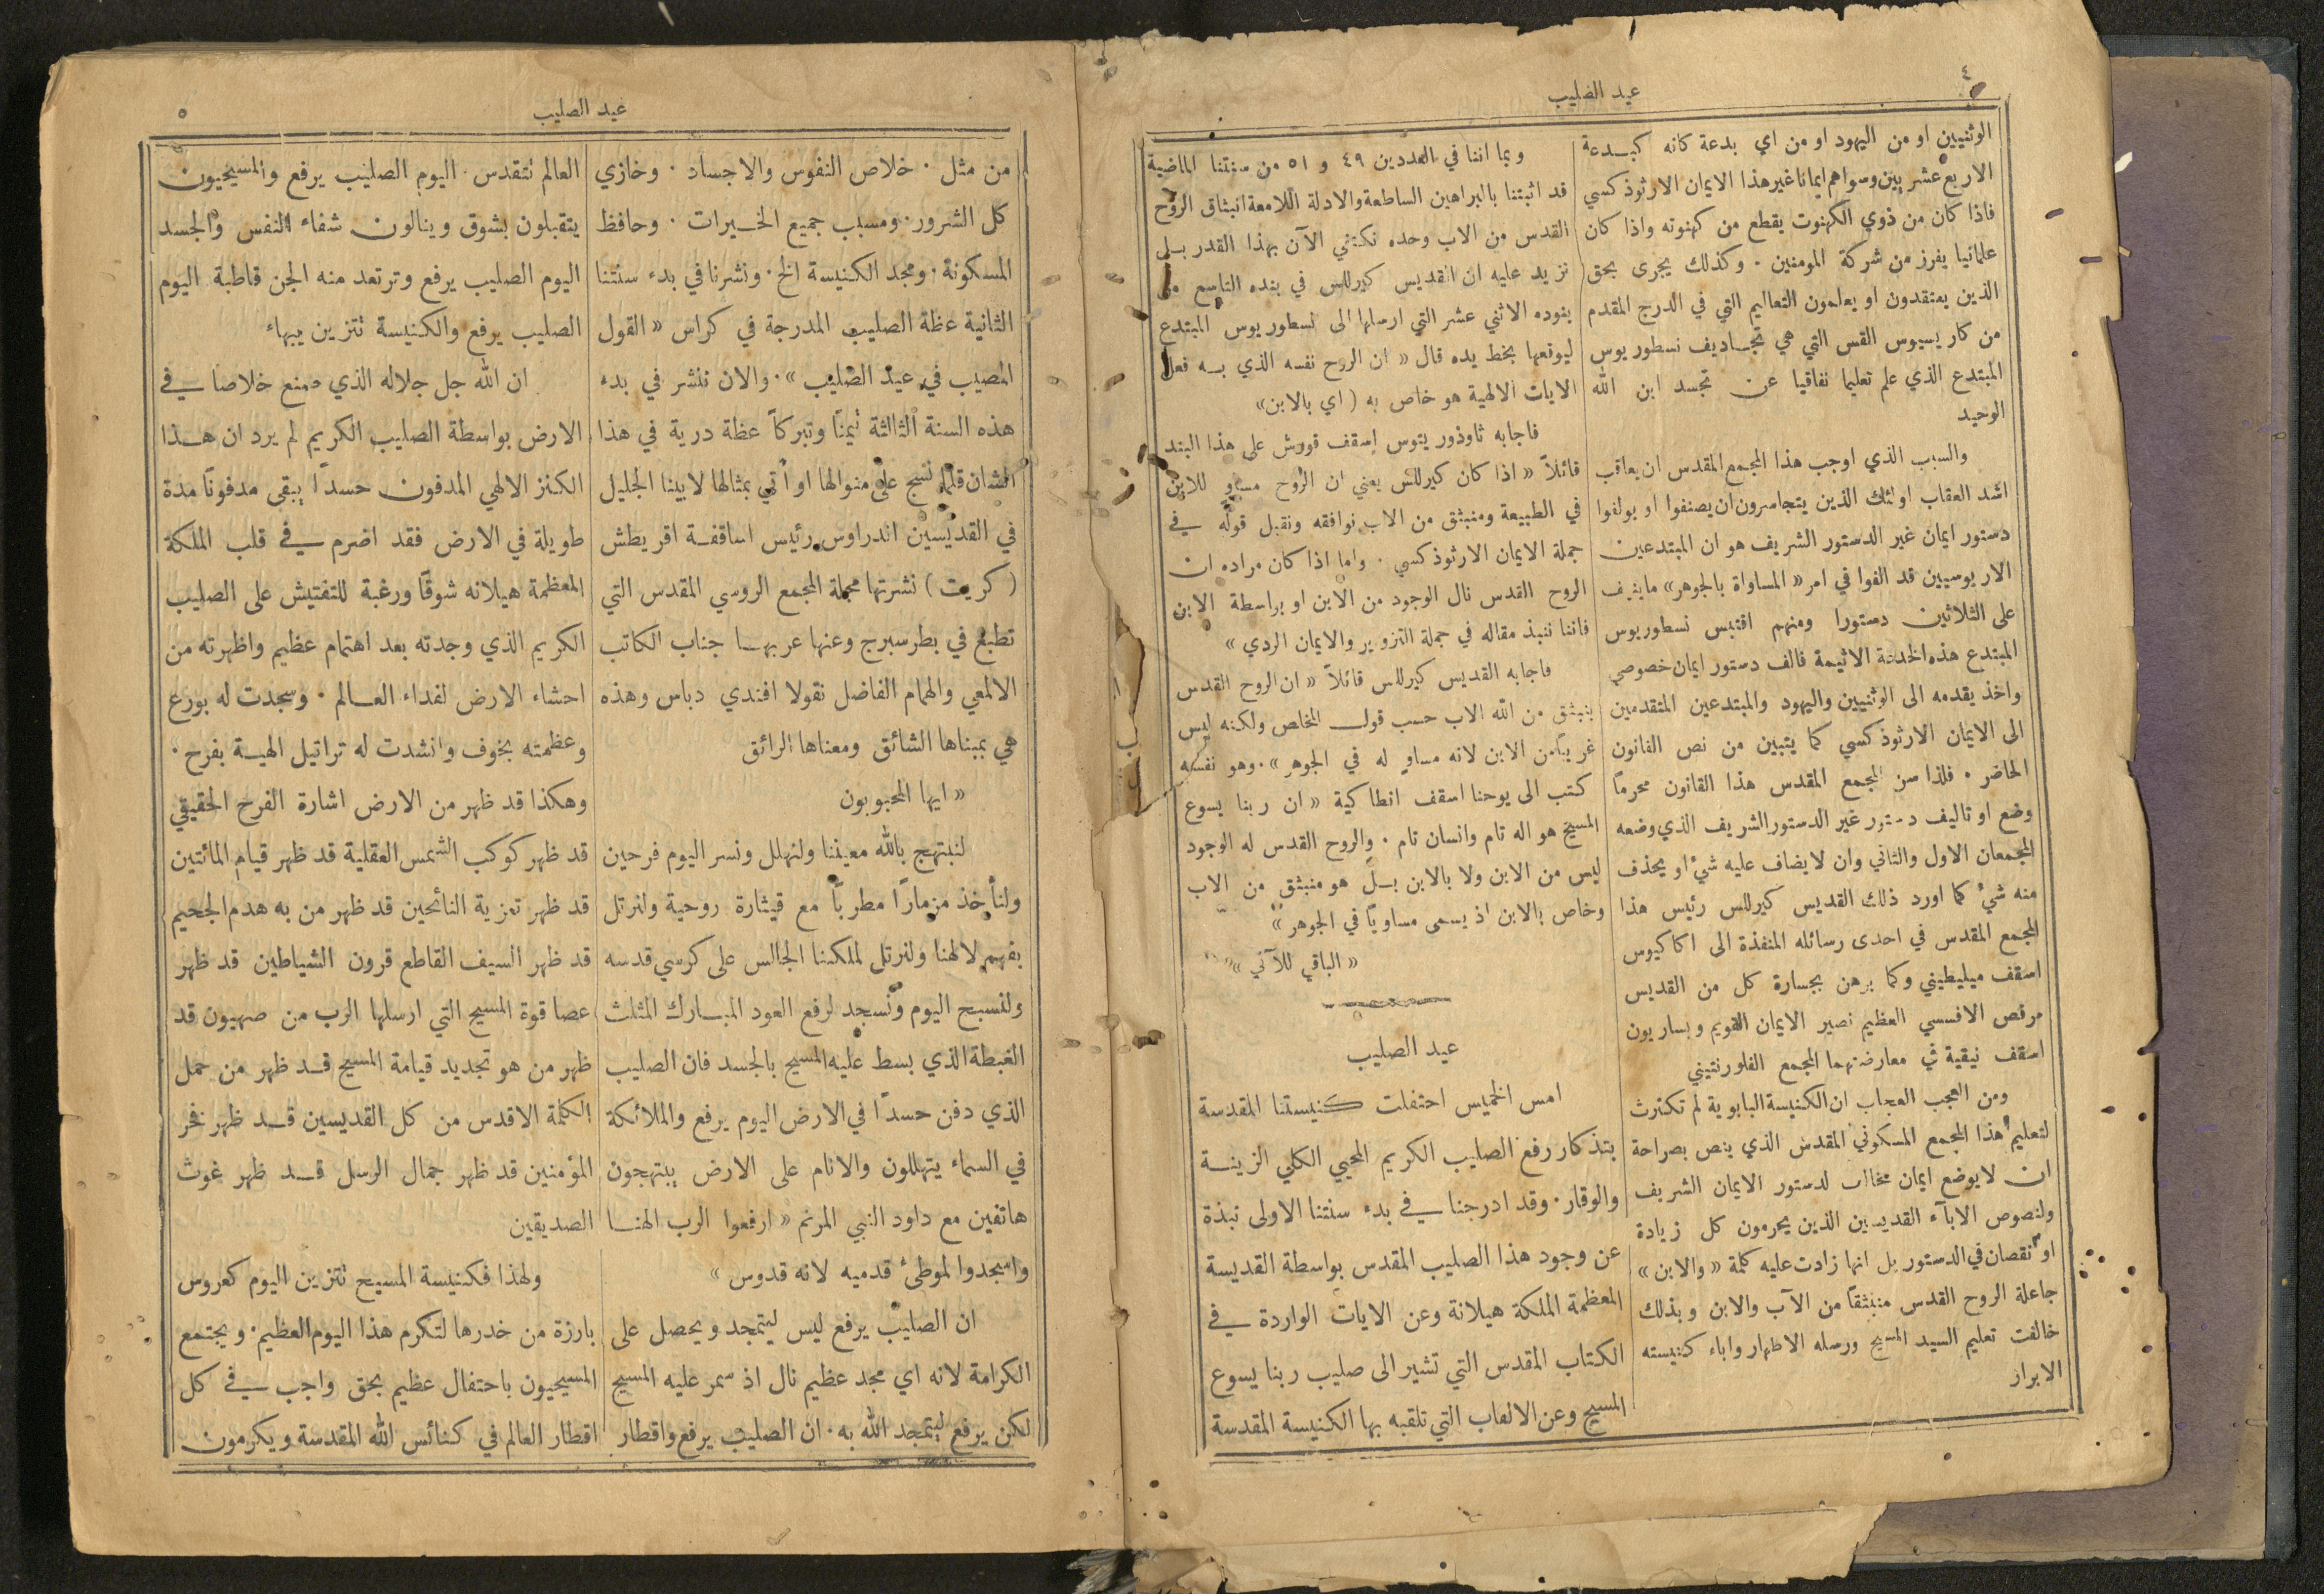 ٤
عيد الصليب
الوثنيين او من اليهود او من اي بدعة كانه كبدعة
الاربع عشر بين وسواهم ايمانا غير هذا الايمان الارثوذكسي
فاذا كان من ذوي الكهنوت يقطع من كهنوته واذا كان
علمانيا يفرز من شركة المومنين . وكذلك يجرى بحق
الذين يعتقدون او يعلمون التعاليم التي في الدرج المقدم
من كاريسيوس القس التي هي تجاديف نسطوريوس
المبتدع الذي علم تعليما نفاقيا عن تجسد ابن الله
الوحيد
والسبب الذي اوجب هذا المجمع المقدس ان يعاقب
اشد العقاب اولئك الذين يتجاسرون ان يصنفوا او يولفوا
دستور ايمان غير الدستور الشريف هو ان المبتدعين
الاريوسيين قد الفوا في امر «المساواة بالجوهر» ما ينيف
على الثلاثين دستورا ومنهم اقتبس نسطوريوس
المبتدع هذه الخدعة الاثيمة فالف دستور ايمان خصوصي
واخذ يقدمه الى الوثنيين واليهود والمبتدعين المتقدمين
الى الايمان الارثوذكسي كما يتبين من نص القانون
الحاضر . فلذا سن المجمع المقدس هذا القانون محرمًا
وضع او تاليف دستور غير الدستور الشريف الذي وضعه
المجمعان الاول والثاني وان لا يضاف عليه شئ او يحذف
منه شئ كما اورد ذلك القديس كيرللس رئيس هذا
المجمع المقدس في احدى رسائله المنفذة الى اكاكيوس
اسقف ميليطيني وكما برهن بجسارة كل من القديس
مرقص الافسسي العظيم نصير الايمان القويم وبساريون
اسقف نيقية في معارضتهما المجمع الفلورنتيني
ومن العجب العجاب ان الكنيسة البابوية لم تكترث
لتعليم هذا المجمع المسكوني المقدس الذي ينص بصراحة
ان لا يوضع ايمان مخالف لدستور الايمان الشريف
ولنصوص الابآء القديسين الذين يحرمون كل زيادة
او نقصان في الدستور بل انها زادت عليه كلمة «والابن»
جاعلة الروح القدس منبثقًا من الآب والابن وبذلك
خالفت تعليم السيد المسيح ورسله الاطهار واباء كنيسته
الابرار
وبما اننا في العددين ٤٩ و ٥١ من سنتنا الماضية
قد اثبتنا بالبراهين الساطعة والادلة اللامعة انبثاق الروح
القدس من الاب وحده نكتفي الآن بهذا القدر بل
نزيد عليه ان القديس كيرللس في بنده التاسع من
بنوده الاثني عشر التي ارسلها الى نسطوريوس المبتدع
ليوقعها بخط يده قال «ان الروح نفسه الذي به فعل
الايات الالهية هو خاص به (اي بالابن»
فاجابه ثاوذوريتوس اسقف قورش على هذا البند
قائلاً «اذا كان كيرللس يعني ان الروح مساوٍ للابن
في الطبيعة ومنبثق من الاب نوافقه ونقبل قوله في
جملة الايمان الارثوذكسي . واما اذا كان مراده ان
الروح القدس نال الوجود من الابن او بواسطة الابن
فاننا ننبذ مقاله في جملة التزوير والايمان الردي»
فاجابه القديس كيرللس قائلاً «ان الروح القدس
ينبثق من الله الاب حسب قول المخلص ولكنه ليس
غريبًا من الابن لانه مساوٍ له في الجوهر». وهو نفسه
كتب الى يوحنا اسقف انطاكية «ان ربنا يسوع
المسيح هو اله تام وانسان تام . والروح القدس له الوجود
ليس من الابن ولا بالابن بل هو منبثق من الاب
وخاص بالابن اذ يسمى مساويًا في الجوهر»
«الباقي للآتي»
عيد الصليب
امس الخميس احتفلت كنيستنا المقدسة
بتذكار رفع الصليب الكريم المحيي الكلي الزينة
والوقار . وقد ادرجنا في بدء سنتنا الاولى نبذة
عن وجود هذا الصليب المقدس بواسطة القديسة
المعظمة الملكة هيلانة وعن الايات الواردة في
الكتاب المقدس التي تشير الى صليب ربنا يسوع
المسيح وعن الالقاب التي تلقبه بها الكنيسة المقدسة
عيد الصليب
٥
من مثل . خلاص النفوس والاجساد . وخازي
كل الشرور . ومسبب جميع الخيرات . وحافظ
المسكونة . ومجد الكنيسة الخ . ونشرنا في بدء سنتنا
الثانية عظة الصليب المدرجة في كراس «القول
المصيب في عيد الصليب». والان ننشر في بدء
هذه السنة الثالثة تيمنًا وتبركًا عظة درية في هذا
الشان قلما نسج على منوالها او أتي بمثالها لابينا الجليل
في القديسين اندراوس رئيس اساقفة اقريطش
(كريت) نشرتها مجلة المجمع الروسي المقدس التي
تطبع في بطرسبرج وعنها عربها جناب الكاتب
الالمعي والهمام الفاضل نقولا افندي دباس وهذه
هي بمبناها الشائق ومعناها الرائق
«ايها المحبوبون
لنبتهج بالله معيننا ولنهلل ونسر اليوم فرحين
ولنأخذ مزمارًا مطربًا مع قيثارة روحية ولنرتل
بفهم لالهنا ولنرتل لملكنا الجالس على كرسي قدسه
ولنسبح اليوم ونسجد لرفع العود المبارك المثلث
الغبطة الذي بسط عليه المسيح بالجسد فان الصليب
الذي دفن حسدًا في الارض اليوم يرفع والملائكة
في السماء يتهللون والانام على الارض يبتهجون
هاتفين مع داود النبي المرنم «ارفعوا الرب الهنا
واسجدوا لموطئ قدميه لانه قدوس»
ان الصليب يرفع ليس ليتمجد ويحصل على
الكرامة لانه اي مجد عظيم نال اذ سمر عليه المسيح
لكن يرفع ليتمجد الله به . ان الصليب يرفع واقطار
العالم تتقدس . اليوم الصليب يرفع والمسيحيون
يتقبلون بشوق وينالون شفاء النفس والجسد
اليوم الصليب يرفع وترتعد منه الجن قاطبة اليوم
الصليب يرفع والكنيسة تتزين ببهاء
ان الله جل جلاله الذي صنع خلاصا في
الارض بواسطة الصليب الكريم لم يرد ان هذا
الكنز الالهي المدفون حسدًا يبقى مدفونًا مدة
طويلة في الارض فقد اضرم في قلب الملكة
المعظمة هيلانه شوقًا ورغبة للتفتيش على الصليب
الكريم الذي وجدته بعد اهتمام عظيم واظهرته من
احشاء الارض لفداء العالم . وسجدت له بورع
وعظمته بخوف وانشدت له تراتيل الهية بفرح .
وهكذا قد ظهر من الارض اشارة الفرح الحقيقي
قد ظهر كوكب الشمس العقلية قد ظهر قيام المائتين
قد ظهر تعزية النائحين قد ظهر من به هدم الجحيم
قد ظهر السيف القاطع قرون الشياطين قد ظهر
عصا قوة المسيح التي ارسلها الرب من صهيون قد
ظهر من هو تجديد قيامة المسيح قد ظهر من حمل
الكلمة الاقدس من كل القديسين قد ظهر فخر
المؤمنين قد ظهر جمال الرسل قد ظهر غوث
الصديقين
ولهذا فكنيسة المسيح تتزين اليوم كعروس
بارزة من خدرها لتكرم هذا اليوم العظيم . ويجتمع
المسيحيون باحتفال عظيم بحق واجب في كل
اقطار العالم في كنائس الله المقدسة ويكرمون